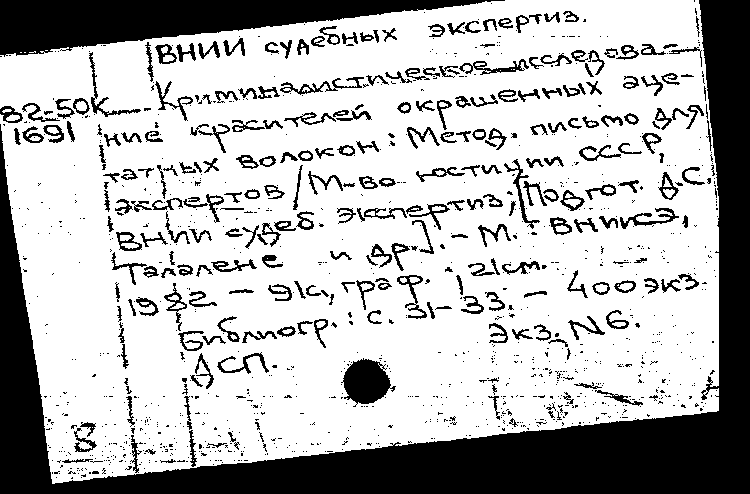 ВНИИ судебных экспертиз.
82-50К Криминалистическое исследова-
1691 ние красителей окрашенных аце-
татных волокон: Метод. письмо для
экспертов / М-во юстиции СССР,
ВНИИ судеб. экспертиз; [Подгот. Д.С.
Талалене и др.]. - М.: ВНИИСЭ,
1982. - 91с., граф.; 21см.
Библиогр.: с. 31-33. - 400 экз.
ДСП. Экз. N6.
8